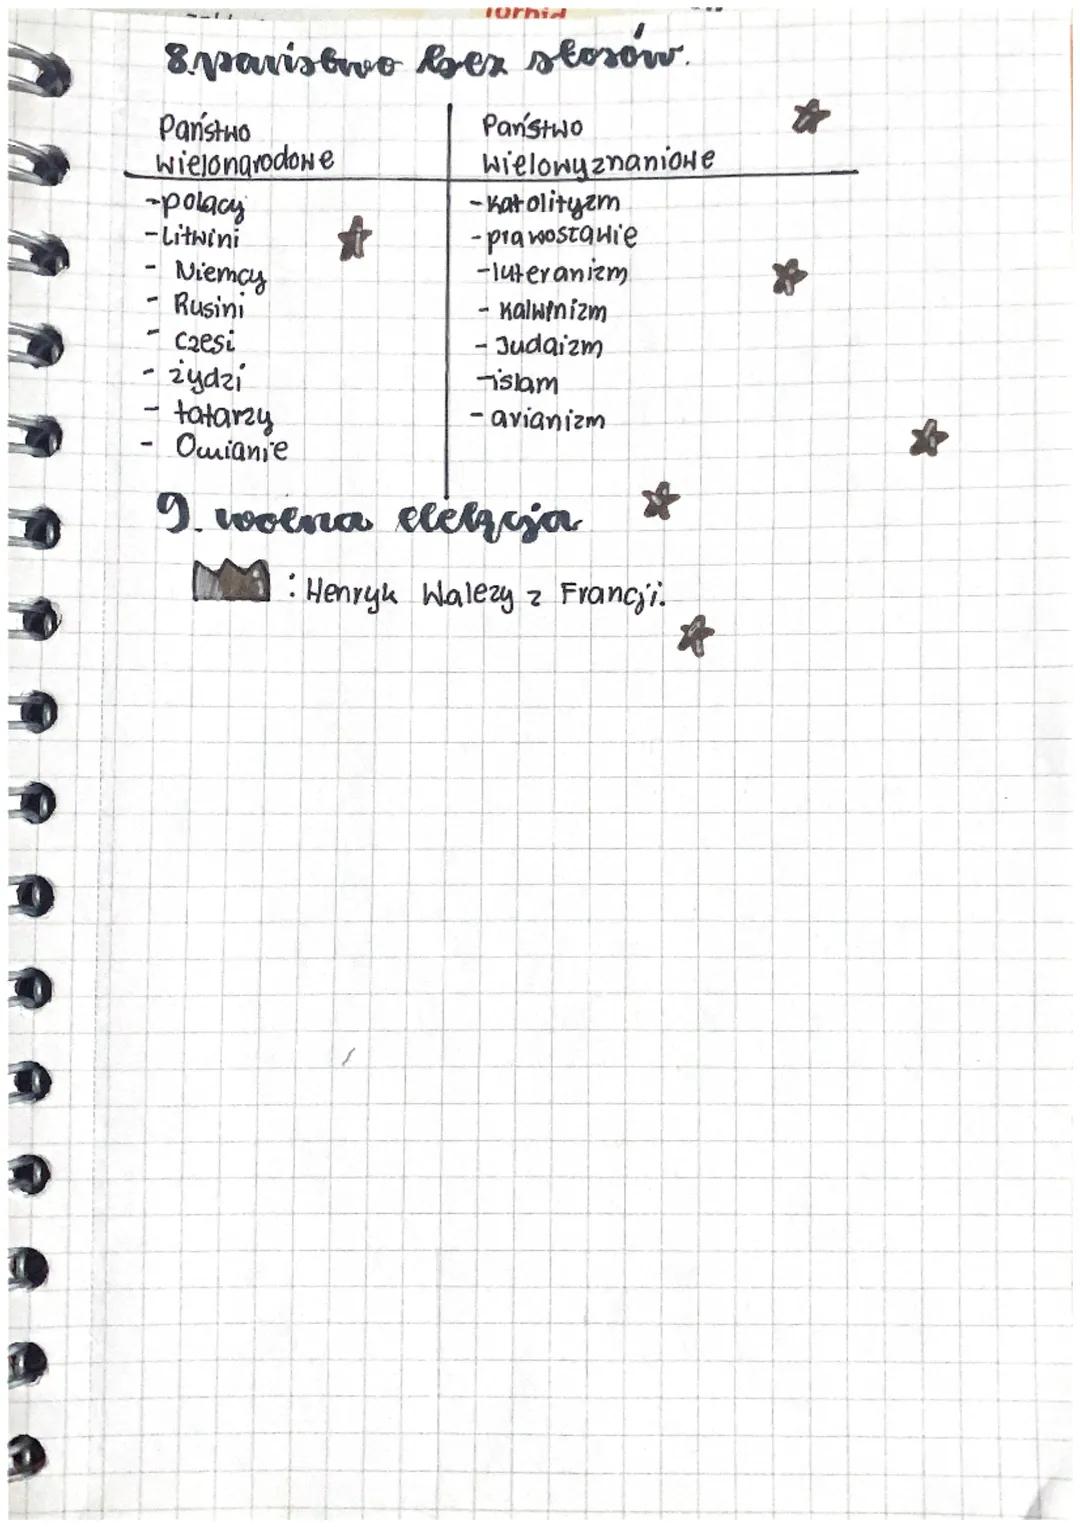 8. państwo bez stosów.
Państwo
wielonarodowe
Państwo
wielowyznaniowe
-polacy
-Litwini
- Niemcy
- Rusini
- Czesi
- żydzi
- tatarzy
- Omianie
-katolityzm
-prawosławie
-luteranizm
- kalwinizm
- Judaizm
-islam
- arianizm
9. wolna elekcja
: Henryk Walezy z Francji.